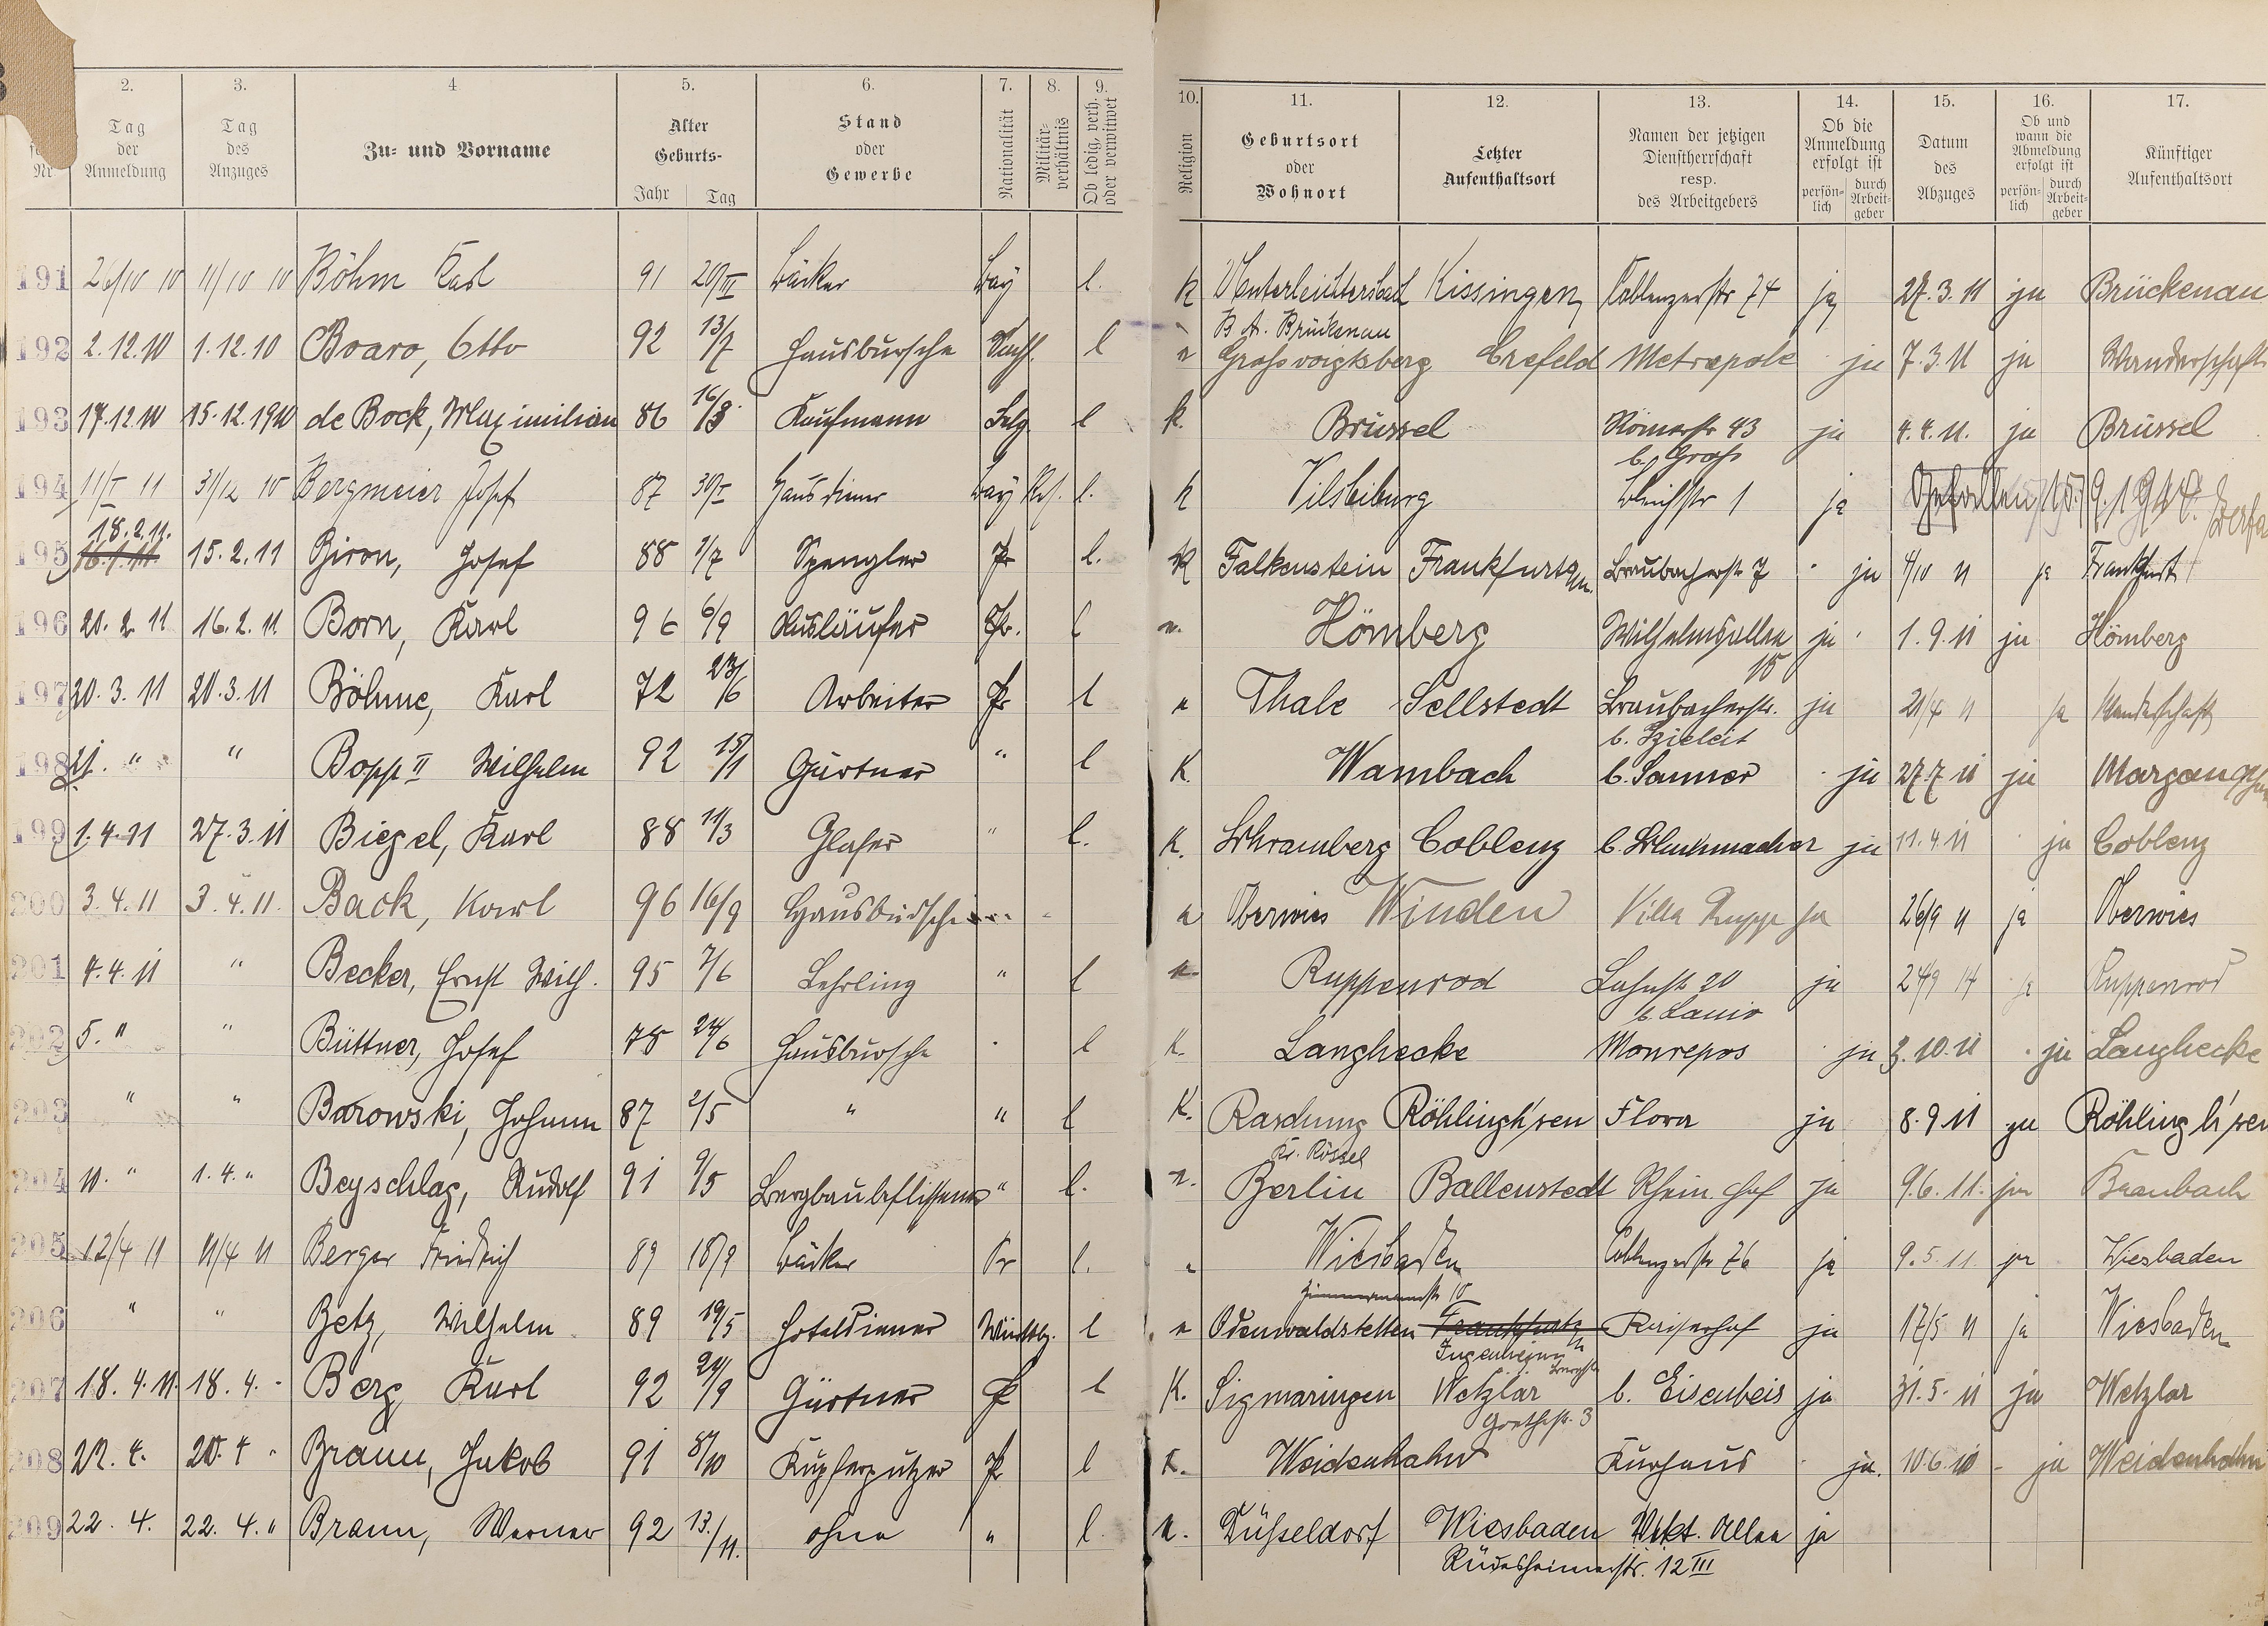 2. 3. 4 5. 6. 7. 8. 9. 10. 11. 12. 13. 14. 15. 16. 17.
Nr
Tag der Anmeldung
Tag des Anzuges
Zu- und Vorname
Alter Geburts- Jahr Tag
Stand oder Gewerbe
Nationalität
Militär-verhältnis
Ob ledig, verh. oder verwitwet
Religion
Geburtsort oder Wohnort
Letzter Aufenthaltsort
Namen der jetzigen Dienstherrschaft resp. des Arbeitgebers
Ob die Anmeldung erfolgt ist persön-lich durch Arbeit-geber
Datum des Abzuges
Ob und wann die Abmeldung erfolgt ist persön-lich durch Arbeit-geber
Künftiger Aufenthaltsort
191 26/10 10 11/10 10 Böhm Karl 91 20/III Bäcker Bay l. K Unterleichtersbach Kissingen Koblenzerstr 74 ja 27.3.11 ja Brückenau
B. A. Brückenau
192 2.12.10 1.12.10 Boaro, Otto 92 13/7 Hausbursche Sachs. l Grossvoigtsberg Crefeld Metropole ja 7.3.11 ja Wanderschaft
193 17.12.10 15.12.1910 de Bock, Maximilian 86 16/8 Kaufmann Belg. l k. Brüssel Römerstr 43 ja 4.4.11. ja Brüssel
b. Groß
194 11/I 11 31/12 10 Bergmeier Josef 87 30/I Hausdiener Bay Res. l. k Vilsbiburg Bleichstr 1 ja Gefallen 15.9.1914.
18.2.11.
195 16.1.11 15.2.11 Biron, Josef 88 1/7 Spengler Pr l. K Falkenstein Frankfurt a/m. Braubacherstr 7 ja 4/10 11 ja Frankfurt
196 21.2.11 16.2.11 Born, Karl 96 6/9 Ausläufer Pr. l Hömberg Wilhelmsallee ja 1.9.11 ja Hömberg
197 20.3.11 20.3.11 Böhme, Karl 72 23/6 Arbeiter Pr l Thale Sellstedt Braubacherstr. ja 21/4 11 ja Wanderschaft
b. Szieleit
198 21. " " Bopp II Wilhelm 92 15/1 Gärtner " l K. Wambach b. Sanner ja 27.7 11 ja
199 1.4.11 27.3.11 Biegel, Karl 88 11/3 Glaser " l. K. Schramberg Coblenz b. Schuhmacher ja 11.4.11 ja Coblenz
200 3.4.11 3.4.11. Back, Karl 96 16/9 Hausbursche Oberwies Winden Villa Rupp ja 26/9 11 ja Oberwies
201 4.4.11 " Becker, Ernst Wilh. 95 7/6 Lehrling " l Ruppenrod Lahnstr 20 ja 24/9 14 ja Ruppenrod
202 5. " " Büttner, Josef 78 24/6 Hausbursche l K. Langhecke Monrepos ja 3.10.11 ja Langhecke
203 " " Barowski, Johann 87 2/5 " " l K. Raschung Röhlingh'sen Flora ja 8.9.11 ja Röhlingh'sen
Kr. Rössel
204 10. " 1.4. " Beyschlag, Rudolf 91 9/5 Bergbaubeflissener " l. Berlin Ballenstedt Rhein. Hof ja 9.6.11. ja Braubach
205 12/4 11 11/4 11 Berger Friedrich 89 18/9 Bäcker Pr l. Wiesbaden Coblenzerstr 76 ja 9.5.11 ja Wiesbaden
206 " " Betz, Wilhelm 89 19/5 Hoteldiener Württbg. l Odenwaldstetten Frankfurt Kaiserhof ja 17/5 11 ja Wiesbaden
Jugenheim
207 18.4.11. 18.4. Berg, Karl 92 24/9 Gärtner Pr l K. Sigmaringen Wetzlar b. Eisenbeis ja 31.5.11 ja Wetzlar
Goethestr. 3
208 22.4. 20.4 Braun, Jakob 91 8/10 Kupferputzer Pr l K. Weidenhahn Kurhaus ja. 10.6.10 ja Weidenhahn
209 22.4. 22.4. " Braun, Werner 92 13./11. ohne " l. Düsseldorf Wiesbaden Vikt. Allee ja
Rüdesheimerstr. 12 III